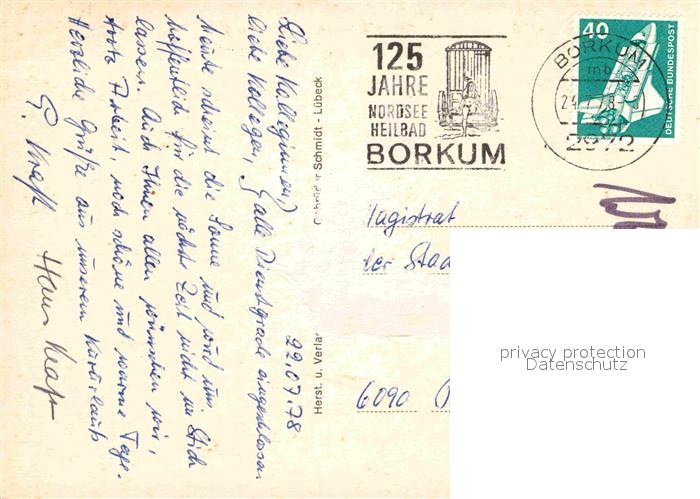 22.07.78
Liebe Kolleginnen,
liebe Kollegen, (alle Dienstgrade eingeschlossen
heute scheint die Sonne und wird uns
hoffentlich für die nächste Zeit nicht im Stich
lassen. Auch Ihnen allen wünschen wir,
trotz Arbeit, noch schöne und warme Tage.
Herzliche Grüße aus unserem Kurzurlaub
G. Kraft Hans Kraft
Schmidt - Lübeck
Herst. u. Verlag
125
JAHRE
NORDSEE
HEILBAD
BORKUM
BORKUM
mb
2972
40
DEUTSCHE BUNDESPOST
Magistrat
der
6090
privacy protection
Datenschutz